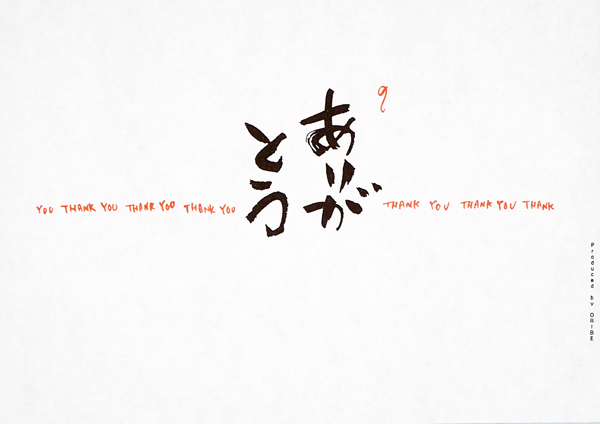 9
ありが
とう
YOU THANK YOU THANK YOU THANK YOU
THANK YOU THANK YOU THANK
Produced by